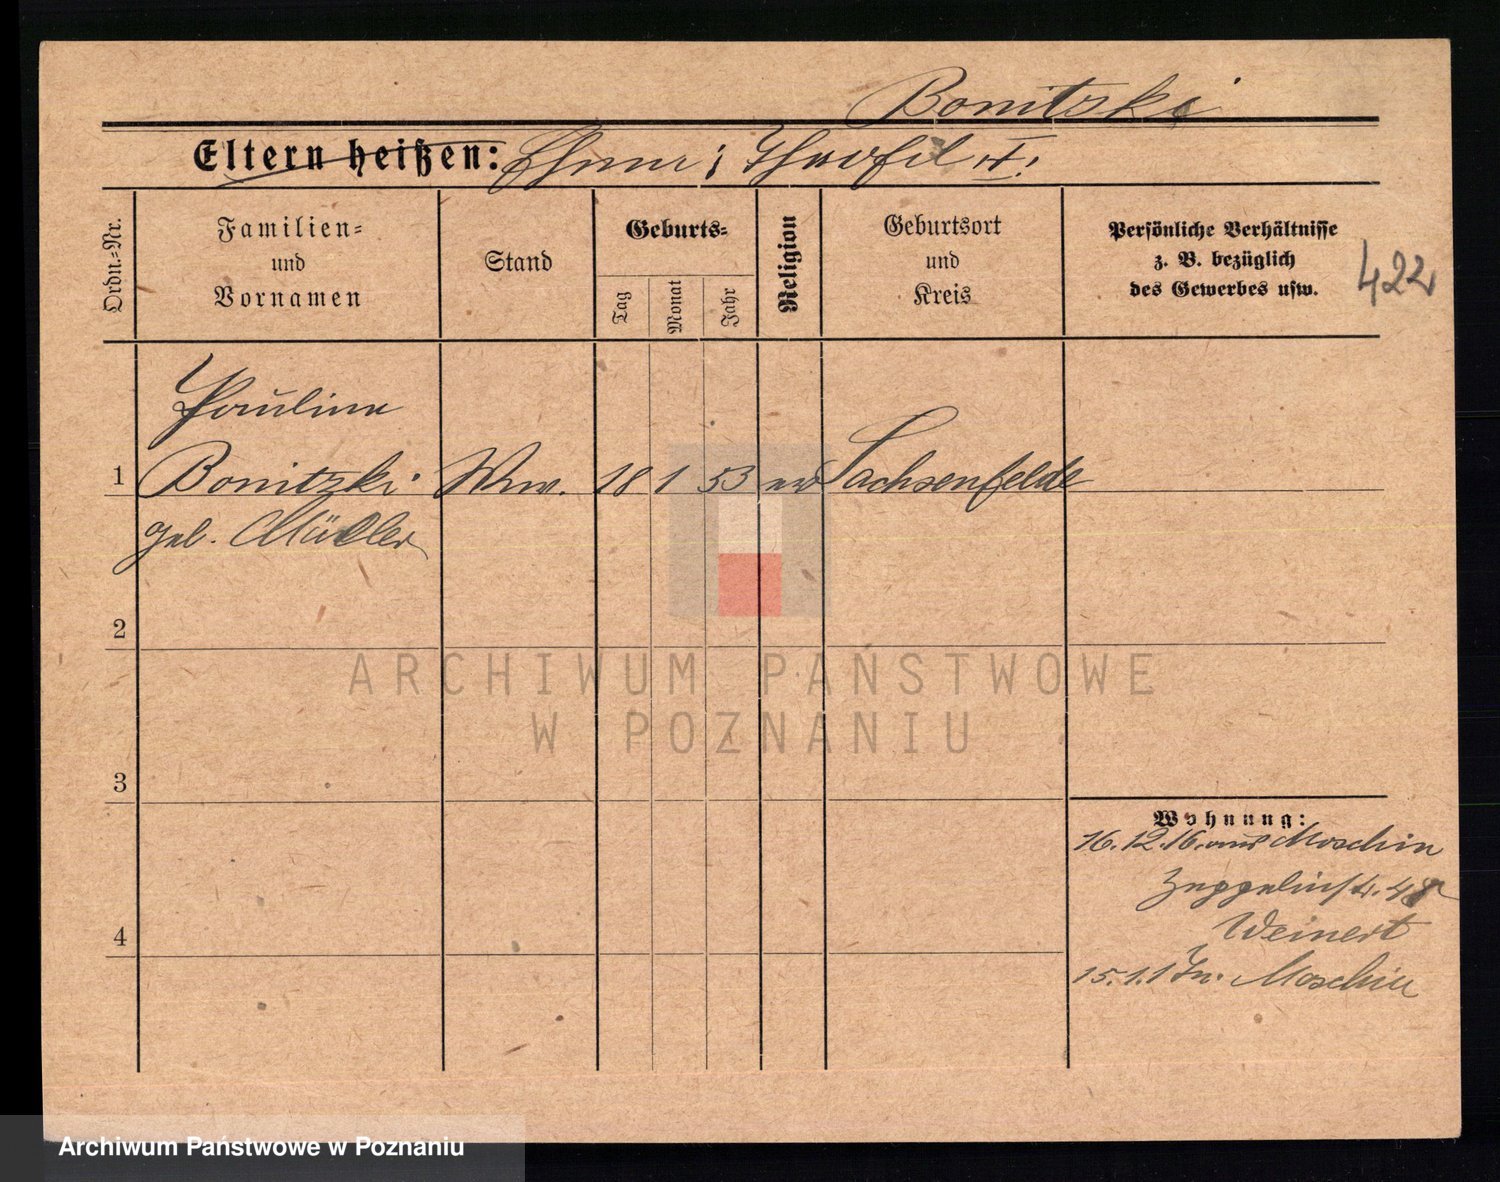 Bonitzki
Eltern heißen: Ehem: Theofil †.
422
Ordn.-Nr.
Familien-
und
Vornamen
Stand
Geburts-
Tag
Monat
Jahr
Religion
Geburtsort
und
Kreis
Persönliche Verhältnisse
z. B. bezüglich
des Gewerbes usw.
Pauline
1 Bonitzki Ww. 18 1 53 ev Sachsenfelde
geb. Müller
2
3
4
Wohnung:
16.12.16. aus Moschin
Zeppelinstr. 48
Weinert
15.1.17 n. Moschin
ARCHIWUM PAŃSTWOWE
W POZNANIU
Archiwum Państwowe w Poznaniu